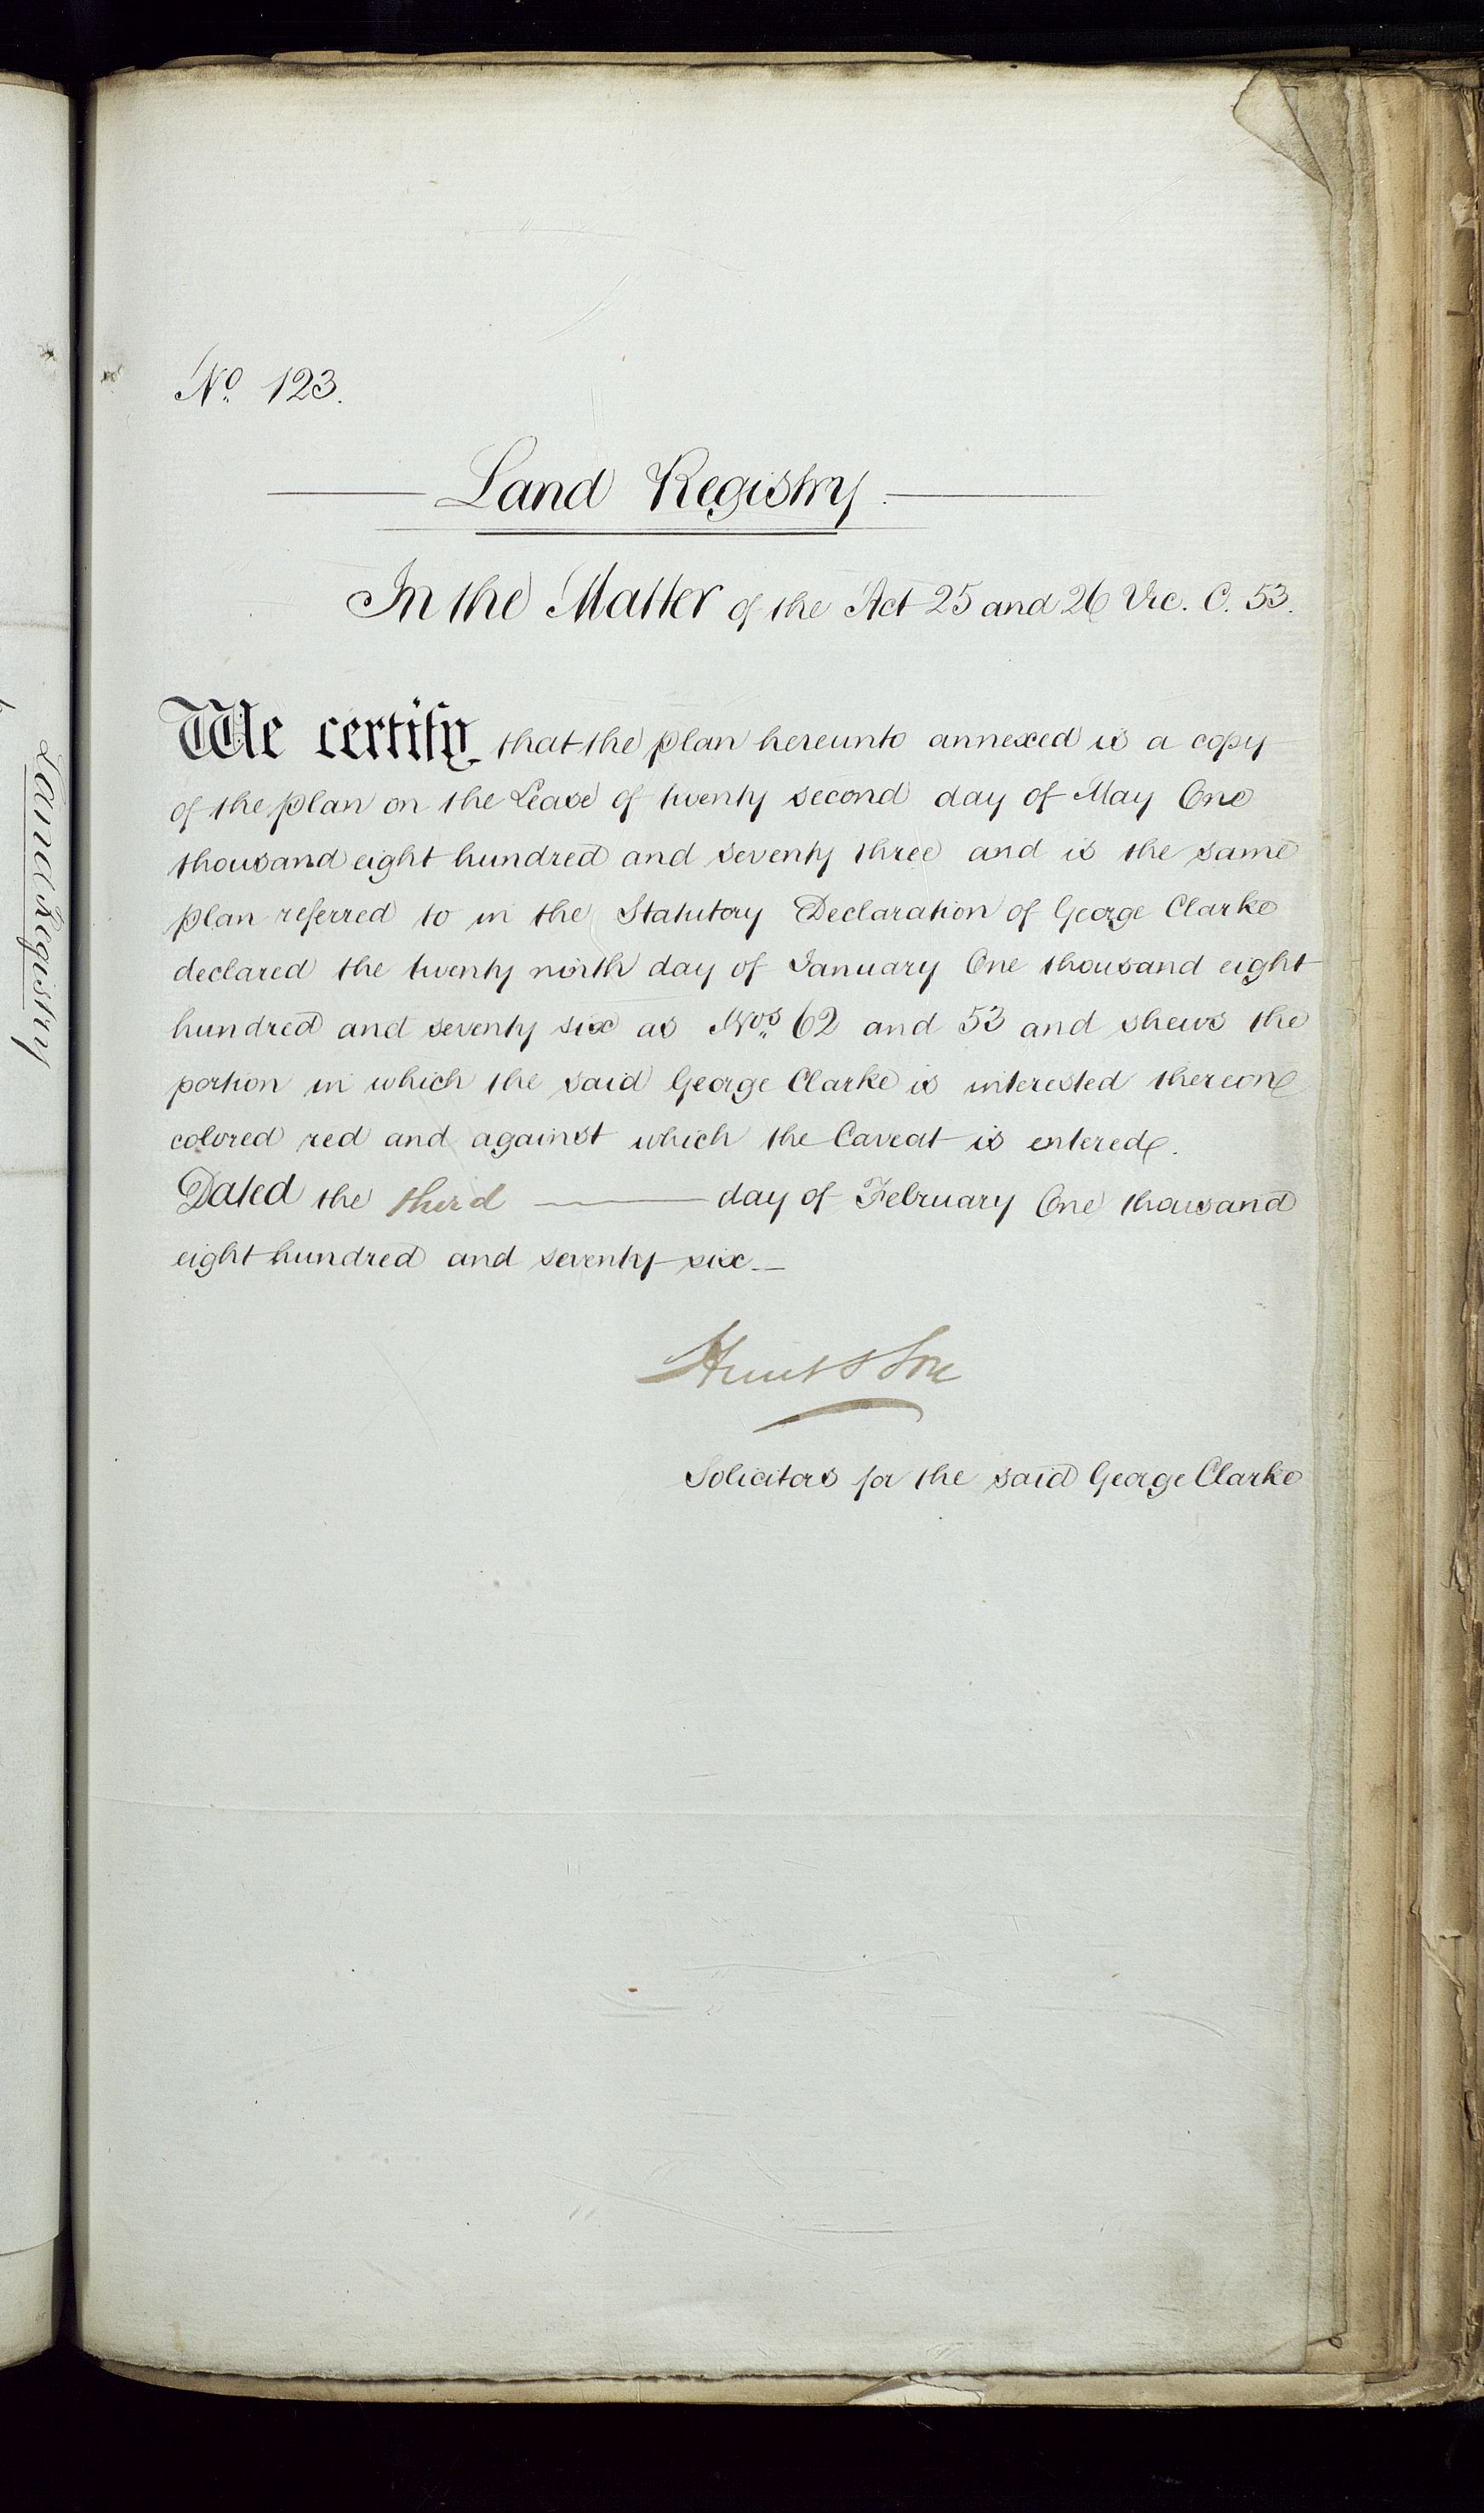 No. 123.
Land Registry.
In the Matter of the Act 25 and 26 Vic. C. 53.
We certify that the plan hereunto annexed is a copy
of the plan on the Lease of twenty second day of May One
thousand eight hundred and seventy three and is the same
plan referred to in the Statutory Declaration of George Clarke
declared the twenty ninth day of January One thousand eight
hundred and seventy six as Nos. 62 and 53 and shews the
portion in which the said George Clarke is interested thereon
colored red and against which the Caveat is entered.
Dated the third day of February One thousand
eight hundred and seventy six
Hunt & Son
Solicitors for the said George Clarke
Land Registry